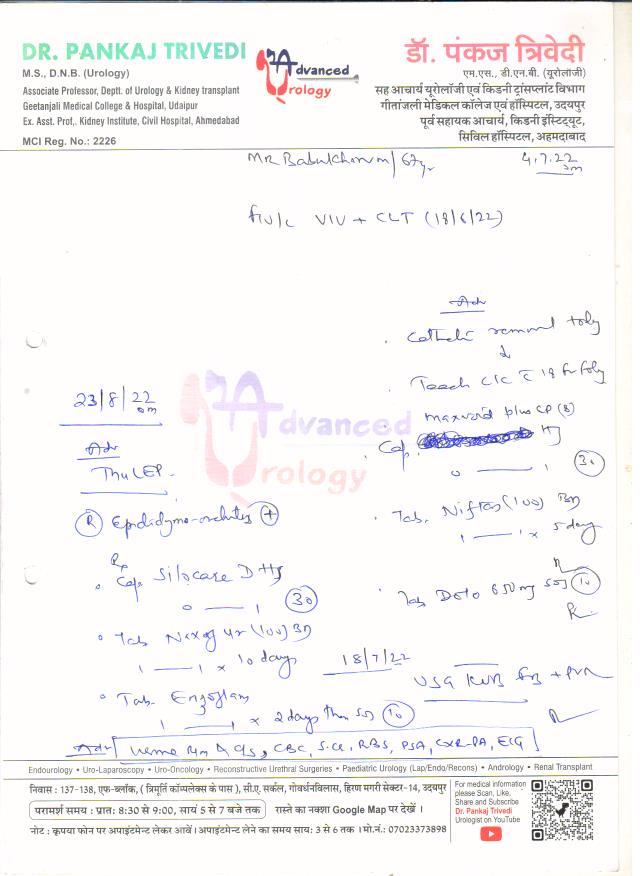 DR. PANKAJ TRIVEDI
M.S., D.N.B. (Urology)
Associate Professor, Deptt. of Urology & Kidney transplant
Geetanjali Medical College & Hospital, Udaipur
Ex. Asst. Prof,. Kidney Institute, Civil Hospital, Ahmedabad
MCI Reg. No.: 2226
Advanced
Urology
डॉ. पंकज त्रिवेदी
एम.एस., डी.एन.बी. (यूरोलॉजी)
सह आचार्य यूरोलॉजी एवं किडनी ट्रांसप्लांट विभाग
गीतांजली मेडिकल कॉलेज एवं हॉस्पिटल, उदयपुर
पूर्व सहायक आचार्य, किडनी इंस्टिट्यूट,
सिविल हॉस्पिटल, अहमदाबाद
67yr
4.7.22
VIU + CLT (18/6/22)
Adv
Catheter removal today
Teach CIC c 18 fr foley
maxvoid plus CP (8)
Cap.
0 — 1 30
Tab. Niftas (100) BD
1 — 1 x 5 days
Tab Dolo 650mg SOS 10
18/7/22
USG KUB + PVR
23/8/22
Adv
ThuLEP
R Epididymo-orchitis +
Rx
Cap Silocare D HS
0 — 1 30
Tab (100) BD
1 — 1 x 10 days
Tab. Enzoflam
1 — 1 x 2 days then SOS 10
Adv Urine R/M & C/S, CBC, S.Cr, RBS, PSA, CXR-PA, ECG
Advanced
Urology
Endourology • Uro-Laparoscopy • Uro-Oncology • Reconstructive Urethral Surgeries • Paediatric Urology (Lap/Endo/Recons) • Andrology • Renal Transplant
निवास : 137-138, एफ-ब्लॉक, ( त्रिमूर्ति कॉम्पलेक्स के पास ), सी.ए. सर्कल, गोवर्धनविलास, हिरण मगरी सेक्टर-14, उदयपुर
परामर्श समय : प्रात: 8:30 से 9:00, सायं 5 से 7 बजे तक रास्ते का नक्शा Google Map पर देखें ।
नोट : कृपया फोन पर अपाइंटमेन्ट लेकर आवें । अपाइंटमेन्ट लेने का समय सायं: 3 से 6 तक । मो.नं.: 07023373898
For medical information
please Scan, Like,
Share and Subscribe
Dr. Pankaj Trivedi
Urologist on YouTube